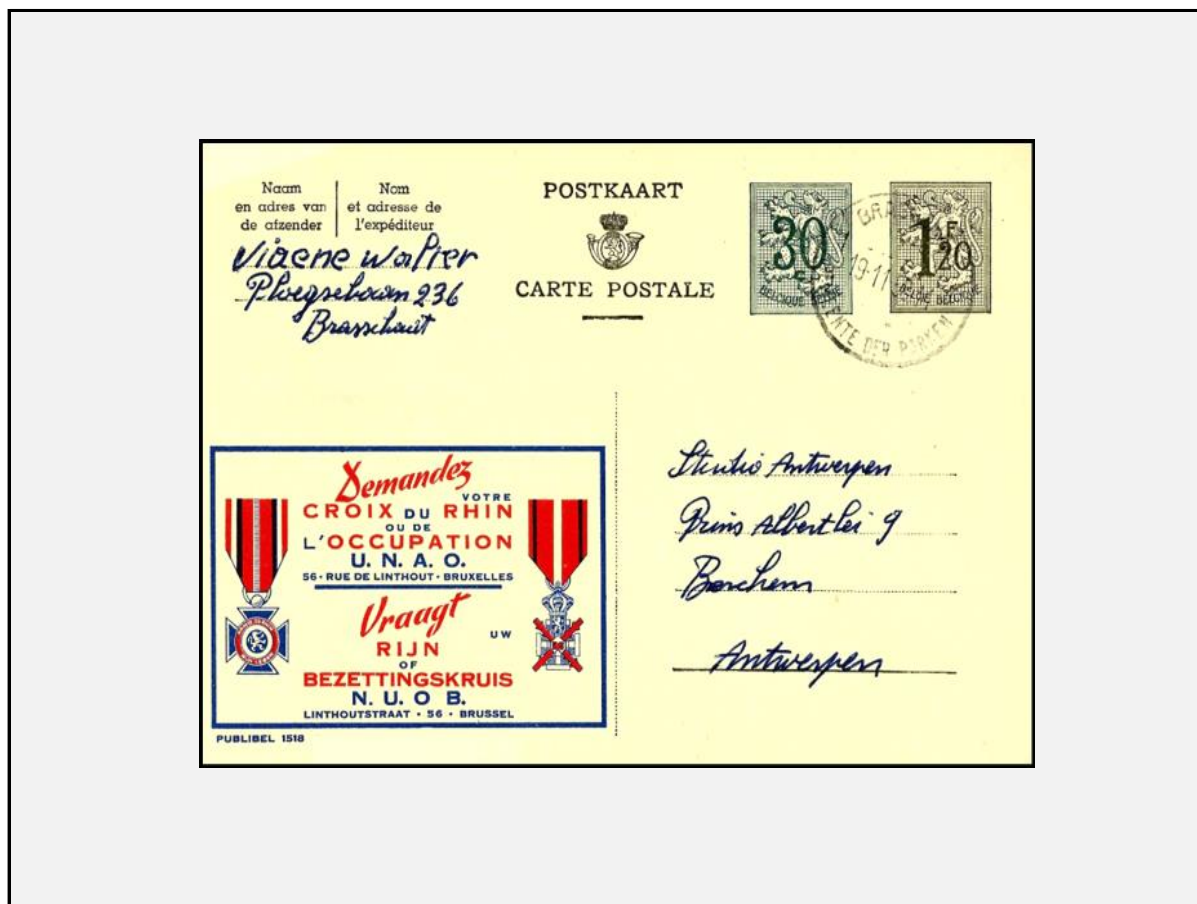 Naam
en adres van
de afzender
Nom
et adresse de
l'expéditeur
Viaene Walter
Ploegsebaan 236
Brasschaat
POSTKAART
CARTE POSTALE
30
C
BELGIQUE
1F20
BELGIE BELGIQUE
BRA
19-11
ENTE DER PARKEN
Demandez
VOTRE
CROIX DU RHIN
OU DE
L'OCCUPATION
U. N. A. O.
56 • RUE DE LINTHOUT • BRUXELLES
Vraagt
UW
RIJN
OF
BEZETTINGSKRUIS
N. U. O B.
LINTHOUTSTRAAT • 56 • BRUSSEL
PUBLIBEL 1518
Studio Antwerpen
Prins Albertlei 9
Berchem
Antwerpen